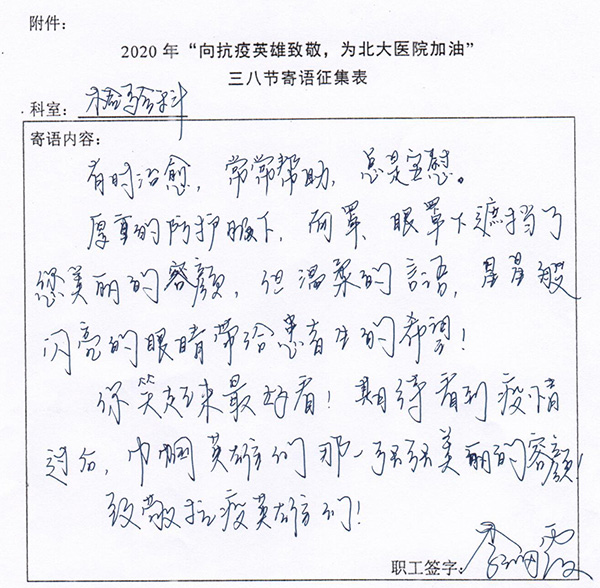 附件：
2020 年“向抗疫英雄致敬，为北大医院加油”
三八节寄语征集表
科室：检验科
寄语内容：
有时治愈，常常帮助，总是安慰。
厚重的防护服下，面罩、眼罩下遮挡了
您美丽的容颜，但温柔的言语，星星般
闪亮的眼睛带给患者生的希望！
你笑起来最好看！期待看到疫情
过后，巾帼英雄们那一张张美丽的容颜！
致敬抗疫英雄们！
职工签字：李霞